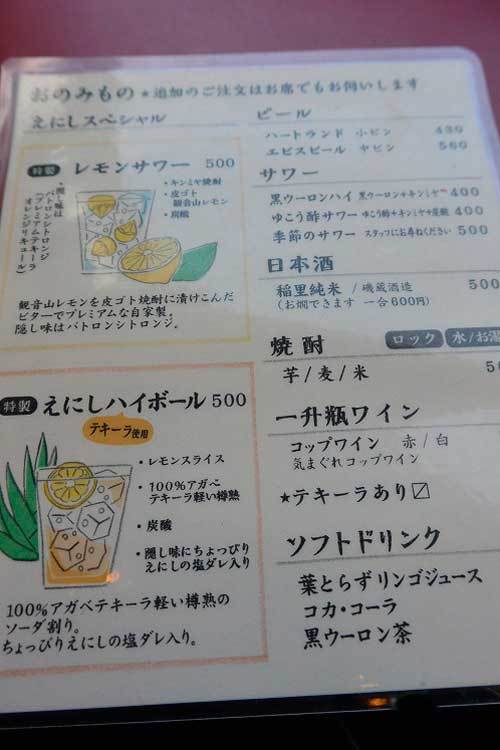 おのみもの ★追加のご注文はお席でもお伺いします
えにしスペシャル
特製 レモンサワー 500
・キンミヤ焼酎
・皮ゴト
観音山レモン
・炭酸
・隠し味は
パトロンシトロンジ
(プレミアムテキーラ
オレンジリキュール)
観音山レモンを皮ゴト焼酎に漬けこんだ
ビターでプレミアムな自家製。
隠し味はパトロンシトロンジ。
特製 えにしハイボール 500
テキーラ使用
・レモンスライス
・100%アガベ
テキーラ軽い樽熟
・炭酸
・隠し味にちょっぴり
えにしの塩ダレ入り
100%アガベテキーラ軽い樽熟の
ソーダ割り。
ちょっぴりえにしの塩ダレ入り。
ビール
ハートランド 小ビン 430
エビスビール 中ビン 560
サワー
黒ウーロンハイ 黒ウーロン+キンミヤ 400
ゆこう酢サワー ゆこう酢+キンミヤ+炭酸 400
季節のサワー スタッフにお尋ねください 500
日本酒
稲里純米 / 磯蔵酒造 500
(お燗できます 一合600円)
焼酎 ロック 水/お湯
芋/麦/米
一升瓶ワイン
コップワイン 赤/白
気まぐれコップワイン
★テキーラあり☑
ソフトドリンク
葉とらずリンゴジュース
コカ・コーラ
黒ウーロン茶